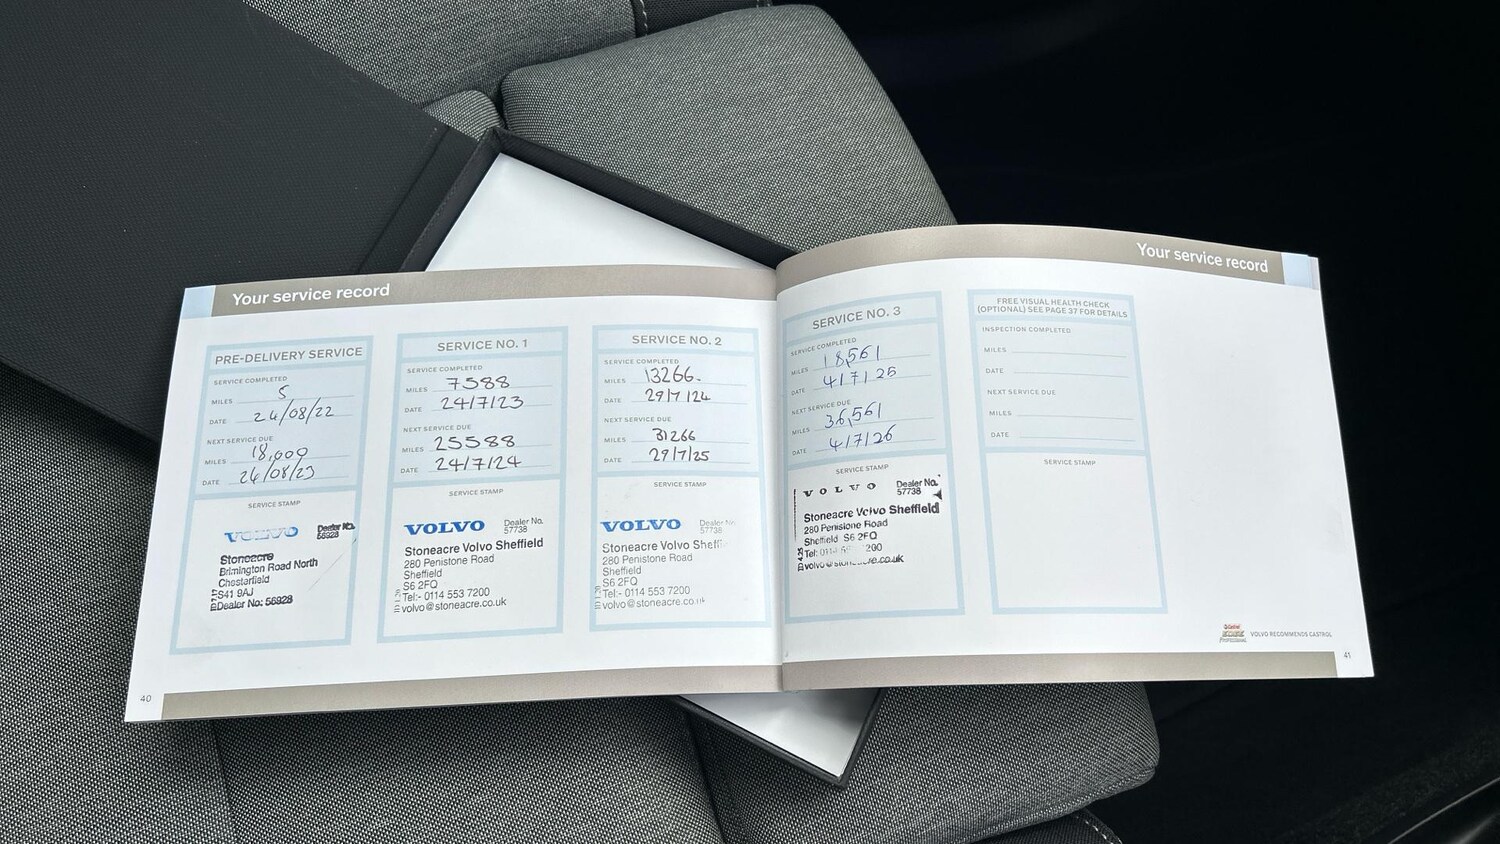 Your service record
PRE-DELIVERY SERVICE
SERVICE COMPLETED
MILES 5
DATE 24/08/22
NEXT SERVICE DUE
MILES 18,000
DATE 24/08/23
SERVICE STAMP
VOLVO Dealer No. 56928
Stoneacre
Brimington Road North
Chesterfield
S41 9AJ
Dealer No: 56928
SERVICE NO. 1
SERVICE COMPLETED
MILES 7588
DATE 24/7/23
NEXT SERVICE DUE
MILES 25588
DATE 24/7/24
SERVICE STAMP
VOLVO Dealer No. 57738
Stoneacre Volvo Sheffield
280 Penistone Road
Sheffield
S6 2FQ
Tel:- 0114 553 7200
volvo@stoneacre.co.uk
SERVICE NO. 2
SERVICE COMPLETED
MILES 13266.
DATE 29/7/24
NEXT SERVICE DUE
MILES 31266
DATE 29/7/25
SERVICE STAMP
VOLVO Dealer No. 57738
Stoneacre Volvo
280 Penistone Road
Sheffield
S6 2FQ
Tel:- 0114 553 7200
volvo@stoneacre.co.uk
40
Your service record
SERVICE NO. 3
SERVICE COMPLETED
MILES 18,561
DATE 4/7/25
NEXT SERVICE DUE
MILES 36,561
DATE 4/7/26
SERVICE STAMP
VOLVO Dealer No. 57738
Stoneacre Volvo Sheffield
280 Penistone Road
Sheffield S6 2FQ
Tel: 200
FREE VISUAL HEALTH CHECK
(OPTIONAL) SEE PAGE 37 FOR DETAILS
INSPECTION COMPLETED
MILES
DATE
NEXT SERVICE DUE
MILES
DATE
SERVICE STAMP
Castrol EDGE Professional
VOLVO RECOMMENDS CASTROL
41